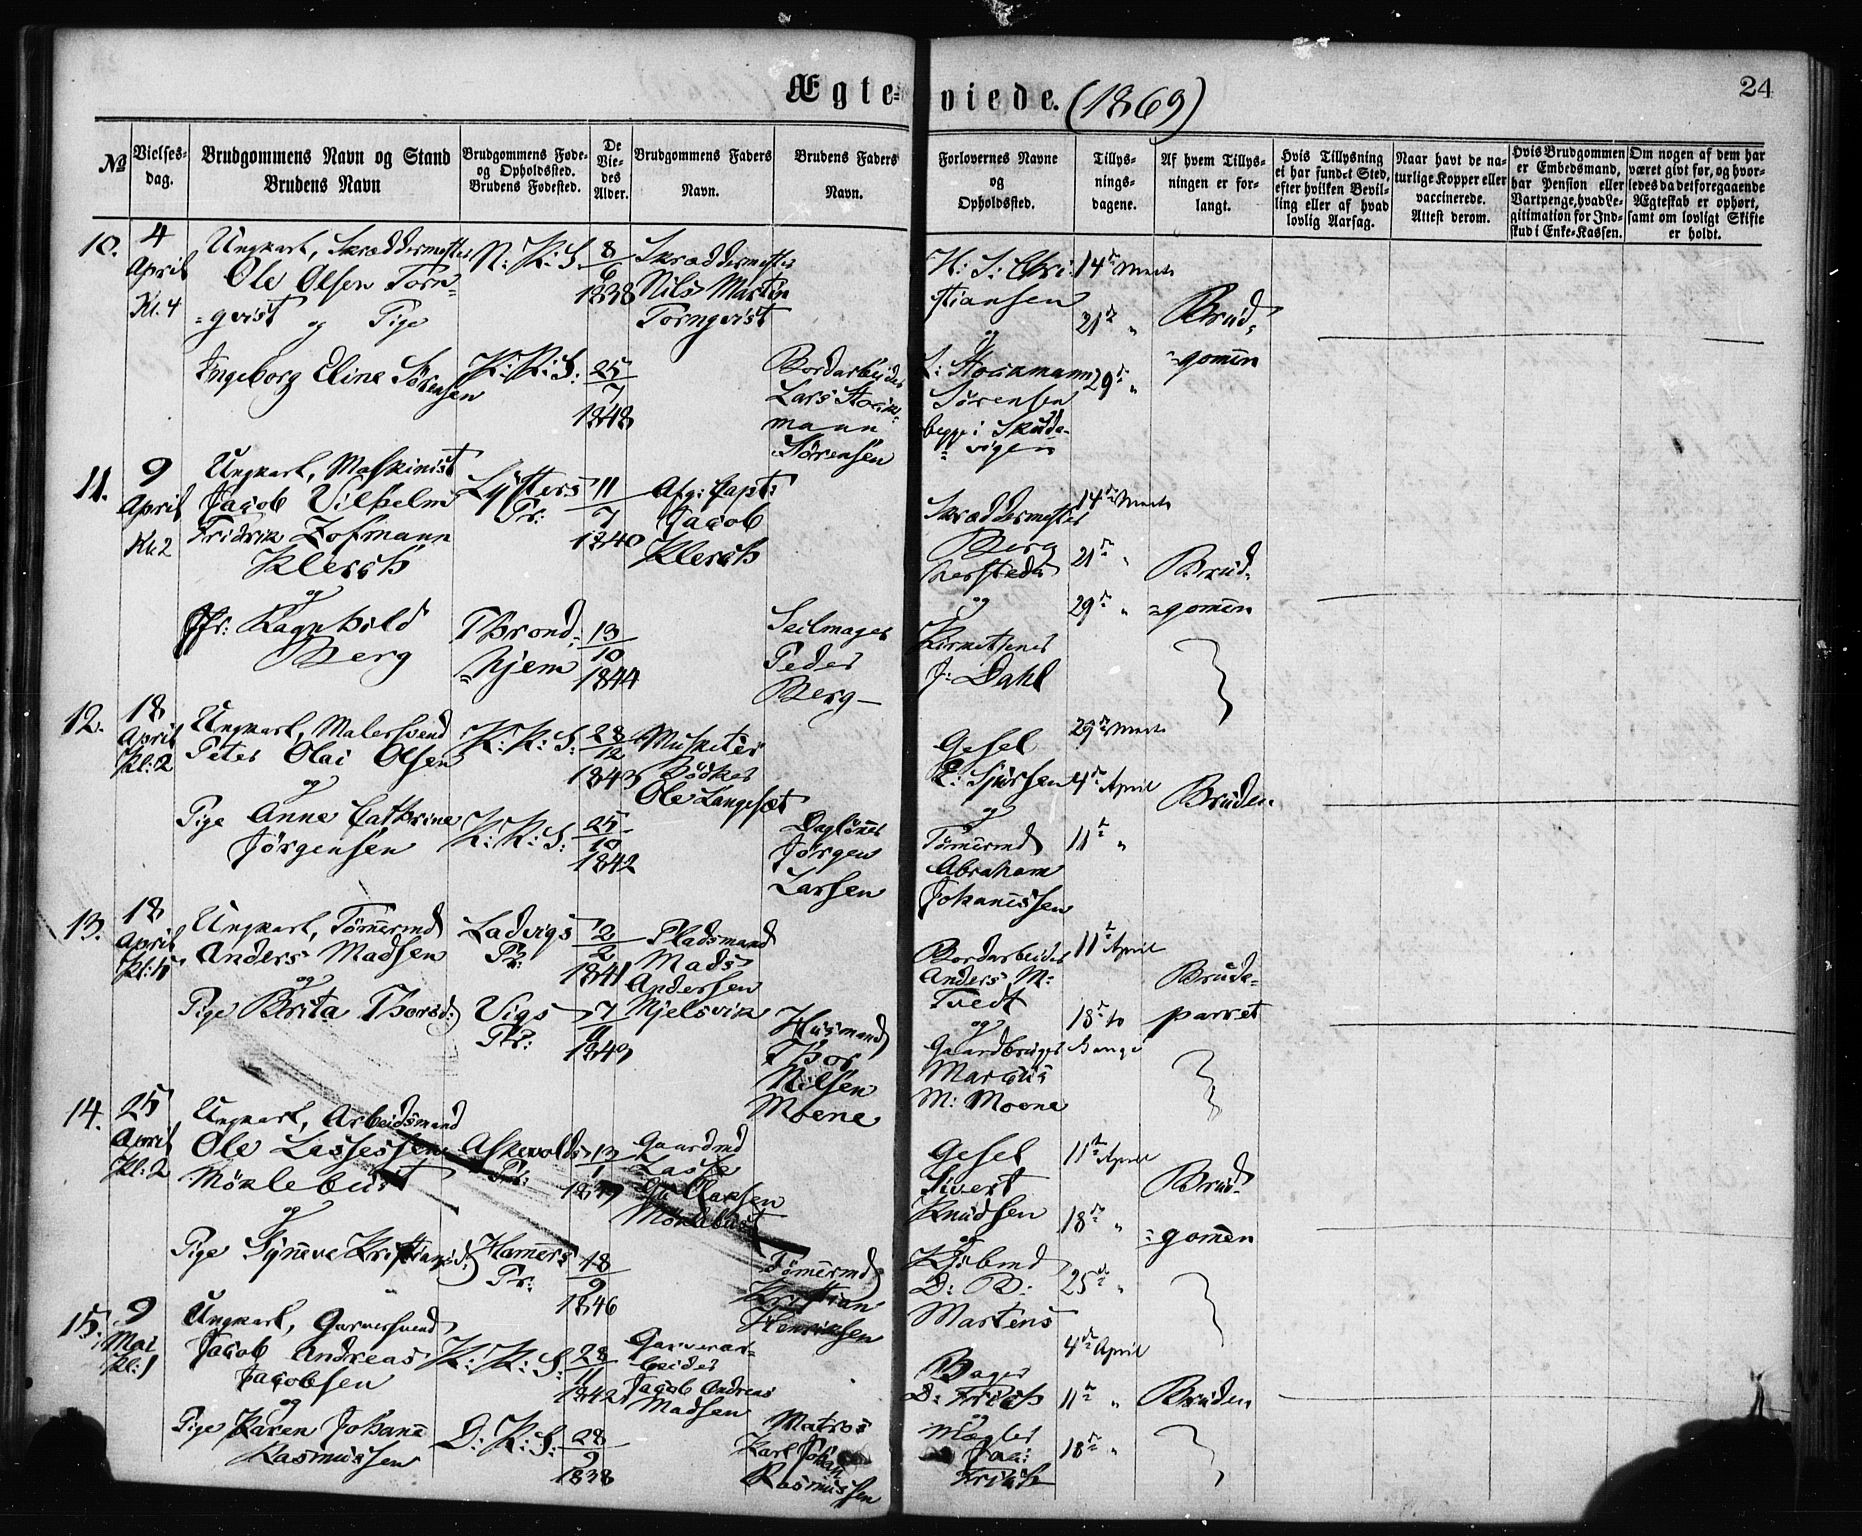 Ægte- viede. (1869)
24
No
Vielses-
dag.
Brudgommens Navn og Stand
Brudens Navn
Brudgommens Føde-
og Opholdssted.
Brudens Fødested.
De
Vie-
des
Alder.
Brudgommens Faders
Navn.
Brudens Faders
Navn.
Forlovernes Navne
og
Opholdssted.
Tillys-
nings-
dagene.
Af hvem Tillys-
ningen er for-
langt.
Hvis Tillysning
ei har fundet Sted,
efter hvilken Bevil-
ling eller af hvad
lovlig Aarsag.
Naar havt de na-
turlige Kopper eller
vaccinerede.
Attest derom.
Hvis Brudgommen
er Embedsmand,
har Pension eller
Vartpenge, hvad Le-
gitimation for Ind-
skud i Enke-Kassen.
Om nogen af dem har
været givt før, og hvor-
ledes da det foregaaende
Ægteskab er ophørt,
samt om lovligt Skifte
er holdt.
10.
4
April
Kl. 4
Ungkarl, Skræddermester
Ole Olsen Torn-
=qvist og Pige
Ingeborg Eline Sørensen
N: K: S.
K: K: S:
8
6
1838
25
7
1848
Skræddermester
Nils Martin
Tornqvist
Bordarbeider
Lars Stock-
mann
Sørensen
H: S: Chri-
stiansen
og
L: Stockmann
Sørensen
begge i Skude-
vigen
14de Marts
21de "
29de "
Brud-
=gomen
11.
9
April
Kl. 2
Ungkarl, Maskinist
Jacob Vilhelm
Fridrik Hofmann
Klerch
og
Jfr: Ragnhild
Berg
Lysters
Pr:
Thrond-
=hjem
11
7
1840
13
10
1844
Afg: Capt:
Jacob
Klerch
Seilmager
Peder
Berg
Skræddermester
Berg
hersteds
og
Kirketjener
J: Dahl
14de Marts
21de "
29de "
Brud-
=gomen
12.
18
April
Kl: 2
Ungkarl, Malersvend
Peter Olai Olsen
og
Pige Anne Cathrine
Jørgensen
K: K: S:
K: K: S:
28
12
1843
25
10
1842
Musketer
Bødker
Ole Langesæt
Dagløner
Jørgen
Larsen
Gesel
E: Sjursen
og
Tømermd
Abraham
Johanessen
29de Marts
4de April
11te "
Bruden
13.
18
April
Kl: 5
Ungkarl, Tømermd
Anders Madsen
og
Pige Brita Thorsd:
Ladvigs
Pr:
Vigs
Pr:
12
2
1841
7
11
1849
Pladsmand
Mads
Andersen
Mjelsvik
Husmand
Thor
Nilsen
Moene
Bordarbeider
Anders M:
Tvedt
og
Gaardbruger
Marcus
M: Moene
11te April
18de to
Gange
Brude-
parret
14.
25
April
Kl: 2
Ungkarl, Arbeidsmand
Ole Lassessen
Møklebust
og
Pige Syneve Kristiansd:
Askevolds
Pr:
Hamers
Pr:
13
1
18
9
1846
Gaardmd
Lasse
Møklebust
Tømermd
Kristian
Henriksen
Gesel
Sivert
Knudsen
og
Kjøbmd
D: B:
Martens
11te April
18de "
25de "
Brud-
=gomen
15.
9
Mai
Kl: 1
Ungkarl, Garversvend
Jacob Andreas
Jacobsen
og
Pige Karen Johane
Rasmussen
K: K: S:
D: K: S:
28
11
1842
28
9
1838
Garverar-
beider
Jacob Andreas
Madsen
Matros
Karl Johan
Rasmussen
Bager
D: Friis
og
Mægler
Friis
4de April
11te "
18de "
Bruden